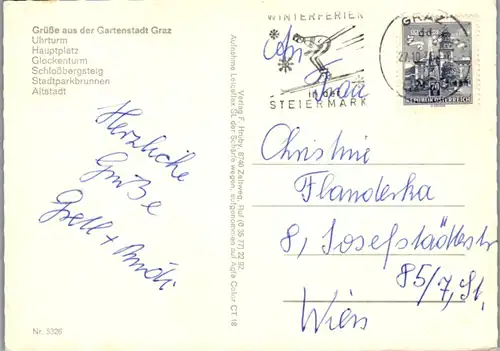 Grüße aus der Gartenstadt Graz
Uhrturm
Hauptplatz
Glockenturm
Schloßbergsteig
Stadtparkbrunnen
Altstadt
Herzliche
Grüße
Gretl +
Nr. 5326
Verlag F. Hruby, 8740 Zeltweg, Ruf (0 35 77) 22 92
Aufnahme Leicaflex SL der Schärfe wegen, aufgenommen auf Agfa Color CT 18
WINTERFERIEN
in der
STEIERMARK
GRAZ
REPUBLIK ÖSTERREICH
An
Frau
Christine
Flanderka
8, Josefstädterstr
85/7, St.
Wien